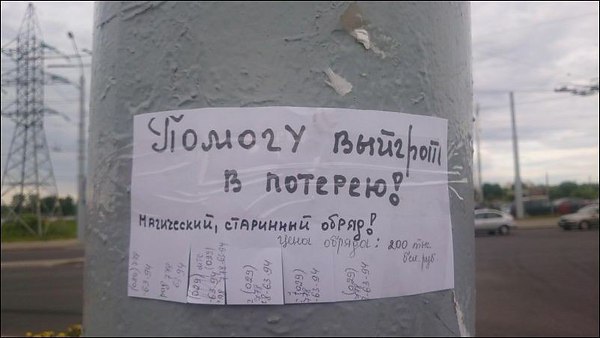 Помогу выйграть
в потерею!
Магический, старинный обряд!
цена обряда: 200 тыс.
бел. руб
(029)
63-94
(029)
63-94
(029)
63-94
(029)
63-94
(029)
63-94